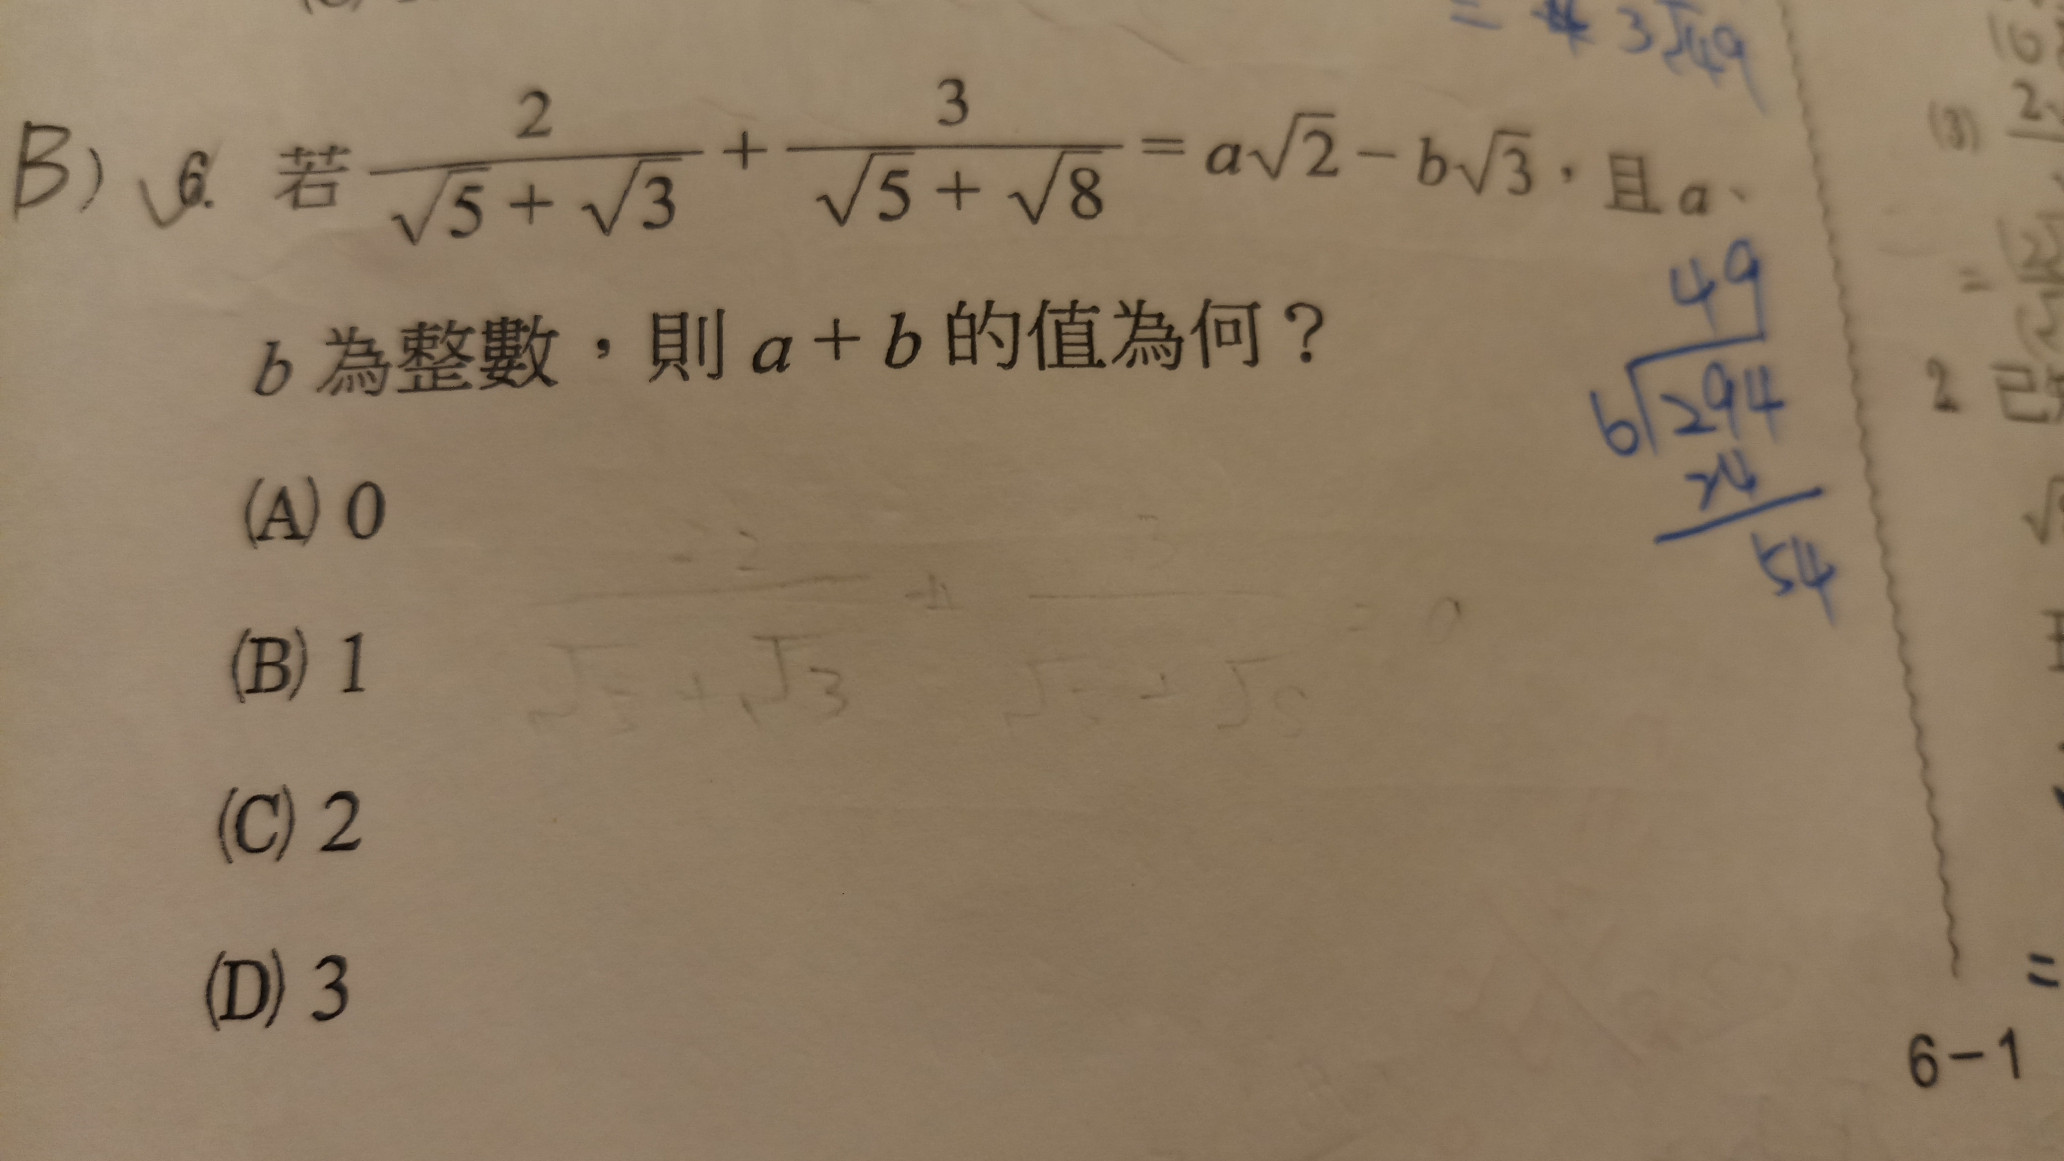 = 3√49
B) √6. 若 2/(√5 + √3) + 3/(√5 + √8) = a√2 − b√3，且 a、
b 為整數，則 a + b 的值為何？
(A) 0
(B) 1
(C) 2
(D) 3
2/(√5 + √3) + 3/(√5 + √8) =
49
6√294
24
54
(3)
2 已
=
6−1